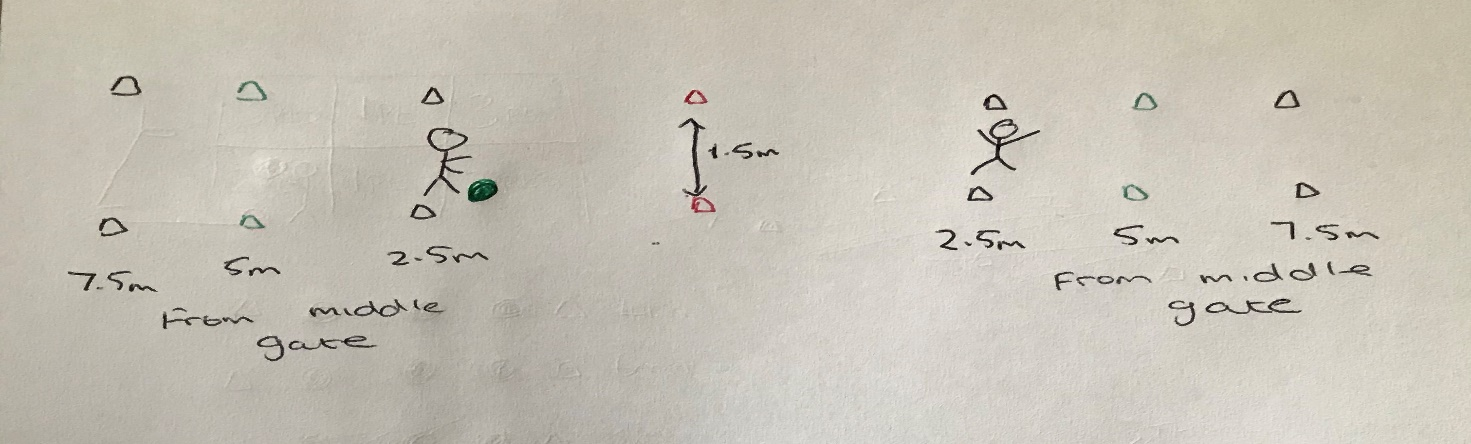 1.5m
7.5m 5m 2.5m
From middle
gate
2.5m 5m 7.5m
From middle
gate